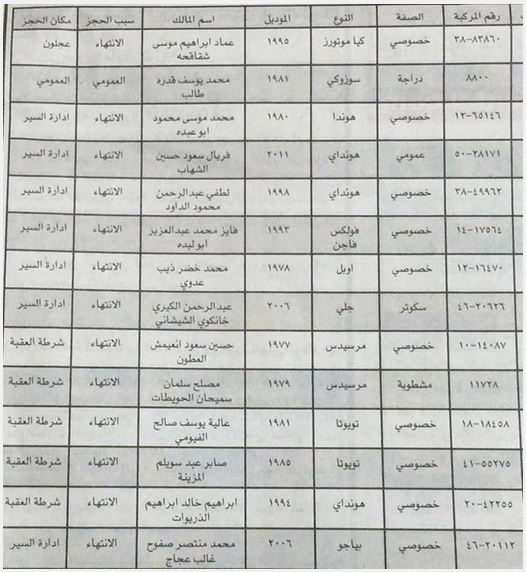 رقم المركبة الصفة النوع الموديل اسم المالك سبب الحجز مكان الحجز
٣٨-٨٣٨٦٠ خصوصي كيا موتورز ١٩٩٥ عماد ابراهيم موسى شقاقحه الانتهاء عجلون
٨٨٠٠ دراجة سوزوكي ١٩٨١ محمد يوسف قدره طالب العمومي العمومي
١٢-٦٥١٤٦ خصوصي هوندا ١٩٨٠ محمد موسى محمود ابو عبده الانتهاء ادارة السير
٥٠-٢٨١٧١ عمومي هونداي ٢٠١١ فريال سعود حسين الشهاب الانتهاء ادارة السير
٣٨-٤٩٩٦٢ خصوصي هونداي ١٩٩٨ لطفي عبدالرحمن محمود الداود الانتهاء ادارة السير
١٤-١٧٥٦٤ خصوصي فولكس فاجن ١٩٩٣ فايز محمد عبدالعزيز ابو لبده الانتهاء ادارة السير
١٢-١٦٤٧٠ خصوصي اوبل ١٩٧٨ محمد خضر ذيب عدوي الانتهاء ادارة السير
٤٦-٢٠٦٢٦ سكوتر جلي ٢٠٠٦ عبدالرحمن الكيري خانكوي الشيشاني الانتهاء ادارة السير
١٠-١٤٠٨٧ خصوصي مرسيدس ١٩٧٧ حسين سعود انعيمش العطون الانتهاء شرطة العقبة
١١٧٢٨ مشطوبة مرسيدس ١٩٧٩ مصلح سلمان سميحان الحويطات الانتهاء شرطة العقبة
١٨-١٨٤٥٨ خصوصي تويوتا ١٩٨١ عالية يوسف صالح الفيومي الانتهاء شرطة العقبة
٤١-٥٥٢٧٥ خصوصي تويوتا ١٩٨٥ صابر عبد سويلم المزينة الانتهاء شرطة العقبة
٢٠-٤٢٢٥٥ خصوصي هونداي ١٩٩٤ ابراهيم خالد ابراهيم الذريوات الانتهاء شرطة العقبة
٤٦-٢٠١١٢ خصوصي بياجو ٢٠٠٦ محمد منتصر صفوح غالب عجاج الانتهاء ادارة السير